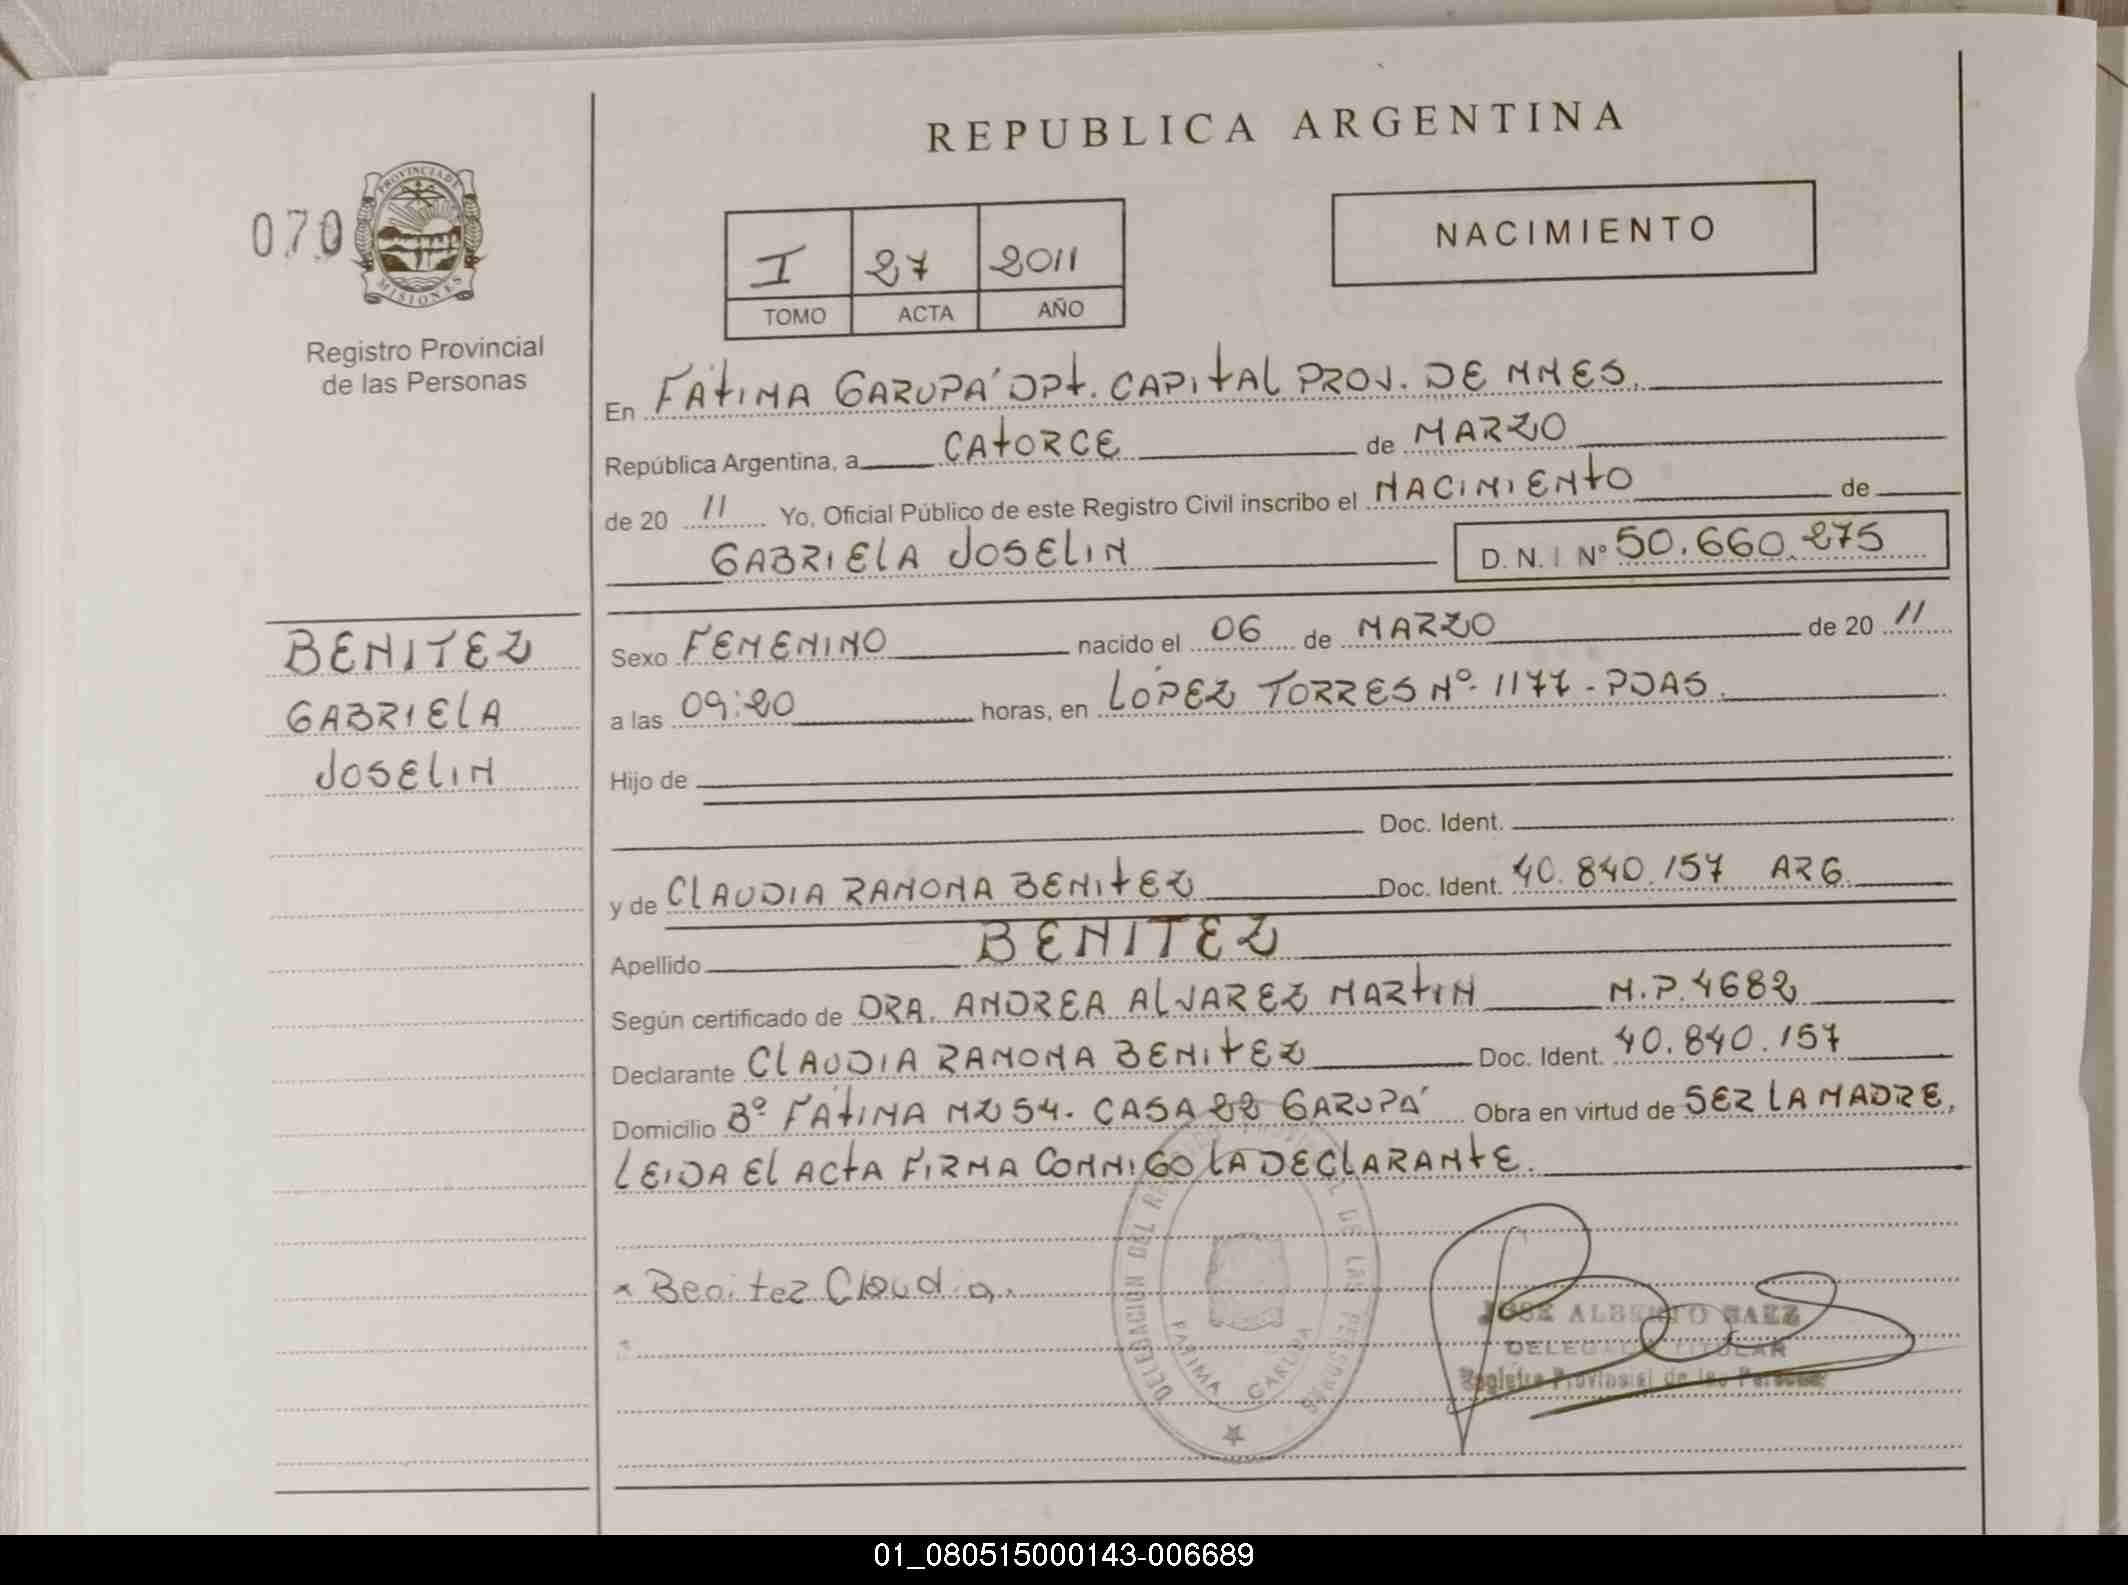 REPUBLICA ARGENTINA
070
PROVINCIA DE
MISIONES
Registro Provincial
de las Personas
I 27 2011
TOMO ACTA AÑO
NACIMIENTO
En FÁTIMA GARUPÁ DPT. CAPITAL PROV. DE MNES.
República Argentina, a CATORCE de MARZO
de 20 11 Yo, Oficial Público de este Registro Civil inscribo el NACIMIENTO de
GABRIELA JOSELIN D.N.I Nº 50.660.275
BENITEZ
GABRIELA
JOSELIN
Sexo FEMENINO nacido el 06 de MARZO de 20 11
a las 09:20 horas, en LÓPEZ TORRES Nº 1177 - PDAS.
Hijo de
Doc. Ident.
y de CLAUDIA RAMONA BENITEZ Doc. Ident. 40.840.157 ARG.
Apellido BENITEZ
Según certificado de DRA. ANDREA ALVAREZ MARTIN M.P. 4682
Declarante CLAUDIA RAMONA BENITEZ Doc. Ident. 40.840.157
Domicilio Bº FÁTIMA MZ 54. CASA 22 GARUPÁ Obra en virtud de SER LA MADRE,
LEIDA EL ACTA FIRMA CONMIGO LA DECLARANTE.
x Benitez Claudia.
DELEGACION DEL REGISTRO PROVINCIAL DE LAS PERSONAS
FATIMA GARUPA
JOSE ALBERTO BAEZ
DELEGADO TITULAR
Registro Provincial de las Personas
01_080515000143-006689